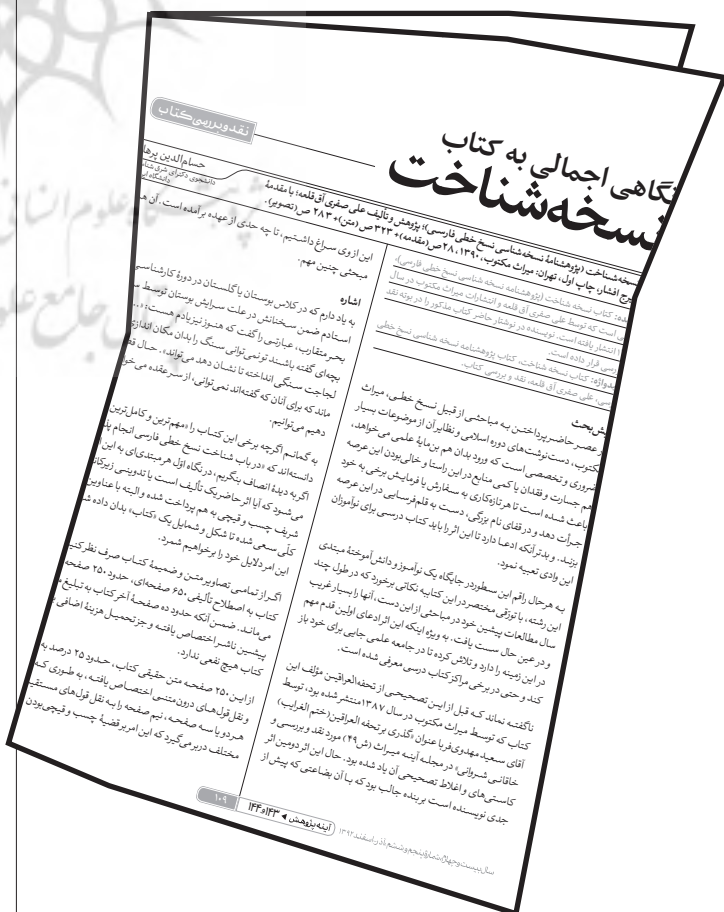 نقد و بررسی کتاب
نگاهی اجمالی به کتاب
نسخه‌شناخت
حسام‌الدین
دانشجوی دکترای
دانشگاه
نسخه‌شناخت (پژوهشنامۀ نسخه‌شناسی نسخ خطی فارسی)؛ پژوهش و تألیف علی صفری آق‌قلعه؛ با مقدمۀ
ایرج افشار، چاپ اول، تهران: میراث مکتوب، ۱۳۹۰، ۲۸ ص (مقدمه) + ۳۲۳ ص (متن) + ۲۸۳ ص (تصویر).
کتاب نسخه شناخت (پژوهشنامه نسخه شناسی نسخ خطی فارسی)،
است که توسط علی صفری آق قلعه و انتشارات میراث مکتوب در سال
انتشار یافته است. نویسنده در نوشتار حاضر کتاب مذکور را در بوته نقد
قرار داده است.
کتاب نسخه شناخت، کتاب پژوهشنامه نسخه شناسی نسخ خطی
علی صفری آق قلعه، نقد و بررسی کتاب.
عصر حاضر پرداختن به مباحثی از قبیل نسخ خطی، میراث
مکتوب، دست‌نوشت‌های دوره اسلامی و نظایر آن از موضوعات بسیار
ضروری و تخصصی است که ورود بدان هم بن‌مایۀ علمی می‌خواهد،
هم جسارت و فقدان یا کمی منابع در این راستا و خالی بودن این عرصه
باعث شده است تا هر تازه‌کاری به سفارش یا فرمایش برخی به خود
جرأت دهد و در قفای نام بزرگی، دست به قلم‌فرسایی در این عرصه
بزند. و بدتر آنکه ادعا دارد تا این اثر را باید کتاب درسی برای نوآموزان
این وادی تعبیه نمود.
به هر حال راقم این سطور در جایگاه یک نوآموز و دانش‌آموختۀ مبتدی
این رشته، با تورّقی مختصر در این کتاب به نکاتی برخورد که در طول چند
سال مطالعات پیشین خود در مباحثی از این دست، آنها را بسیار غریب
و در عین حال سست یافت. به ویژه اینکه این اثر ادعای اولین قدم مهم
در این زمینه را دارد و تلاش کرده تا در جامعه علمی جایی برای خود باز
کند و حتی در برخی مراکز کتاب درسی معرفی شده است.
ناگفته نماند که قبل از این تصحیحی از تحفه‌العراقین مؤلف این
کتاب که توسط میراث مکتوب در سال ۱۳۸۷ منتشر شده بود، توسط
آقای سعید مهدوی‌فر با عنوان «گذری بر تحفه العراقین (ختم الغرایب)
خاقانی شروانی» در مجلۀ آینه میراث (ش۴۹) مورد نقد و بررسی و
کاستی‌های و اغلاط تصحیحی آن یاد شده بود. حال این اثر دومین اثر
جدی نویسنده است. بر بنده جالب بود که با آن بضاعتی که پیش از
این از وی سراغ داشتیم، تا چه حدی از عهده برآمده است. آن هم
مبحثی چنین مهم.
اشاره
به یاد دارم که در کلاس بوستان یا گلستان در دورۀ کارشناسی
استادم ضمن سخنانش در علت سرایش بوستان توسط
بحر متقارب، عبارتی را گفت که هنوز نیز یادم هست: «...
بچه‌ای گفته باشند تو نمی‌توانی سنگ را بدان مکان اندازی
لجاجت سنگی انداخته تا نشان دهد می‌تواند». حال
ماند که برای آنان که گفته‌اند نمی‌توانی، از سر عقده
دهیم می‌توانیم.
به گمانم اگرچه برخی این کتاب را «مهم‌ترین و کامل‌ترین
دانسته‌اند که «در باب شناخت نسخ خطی فارسی انجام
اگر به دیدۀ انصاف بنگریم، در نگاه اوّل هر مبتدی‌ای به این
می‌شود که آیا اثر حاضر یک تألیف است یا تدوینی
شریف چسب و قیچی به هم پرداخت شده و البته با عناوین
کلّی سعی شده تا شکل و شمایل یک «کتاب» بدان داده
این امر دلایل خود را برخواهیم شمرد.
اگر از تمامی تصاویر متن و ضمیمۀ کتاب صرف نظر
کتاب به اصطلاح تألیفی ۶۵۰ صفحه‌ای، حدود ۲۵۰ صفحه
می‌ماند. ضمن آنکه حدود ده صفحۀ آخر کتاب به تبلیغ
پیشین ناشر اختصاص یافته و جز تحمیل هزینۀ اضافی
کتاب هیچ نفعی ندارد.
از این ۲۵۰ صفحه متن حقیقی کتاب، حدود ۲۵ درصد به
و نقل قول‌های درون‌متنی اختصاص یافته، به طوری که
هر دو یا سه صفحه، نیم صفحه را به نقل قول‌های
مختلف دربر می‌گیرد که این امر بر قضیۀ چسب و قیچی بودن
۱۰۹
آینه پژوهش ◄ ۱۴۳ و ۱۴۴
سال بیست و چهارم، شمارۀ پنجم و ششم، آذر ـ اسفند ۱۳۹۲